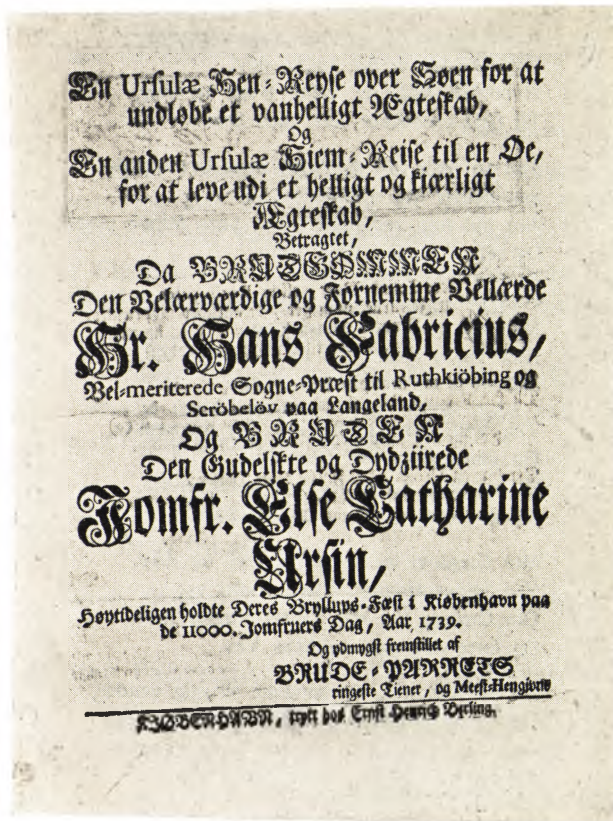 En Ursulæ Hen-Reyse over Søen for at
undløbe et vanhelligt Ægteskab,
Og
En anden Ursulæ Hiem-Reise til en Øe,
for at leve udi et helligt og kiærligt
Ægteskab,
Betragtet,
Da BRUDGOMMEN
Den Velærværdige og Fornemme Vellærde
Hr. Hans Fabricius,
Vel-meriterede Sogne-Præst til Ruthkiöbing og
Scröbelöv paa Langeland,
Og BRUDEN
Den Gudelskte og Dydziirede
Jomfr. Else Catharine
Ursin,
Høytideligen holdte Deres Bryllups-Fæst i Kiøbenhavn paa
de 11000. Jomfruers Dag, Aar 1739.
Og ydmygst fremstillet af
BRUDE-PARRETS
ringeste Tiener, og Meest-Hengivne
KIØBENHAVN, trykt hos Ernst Henrich Berling.